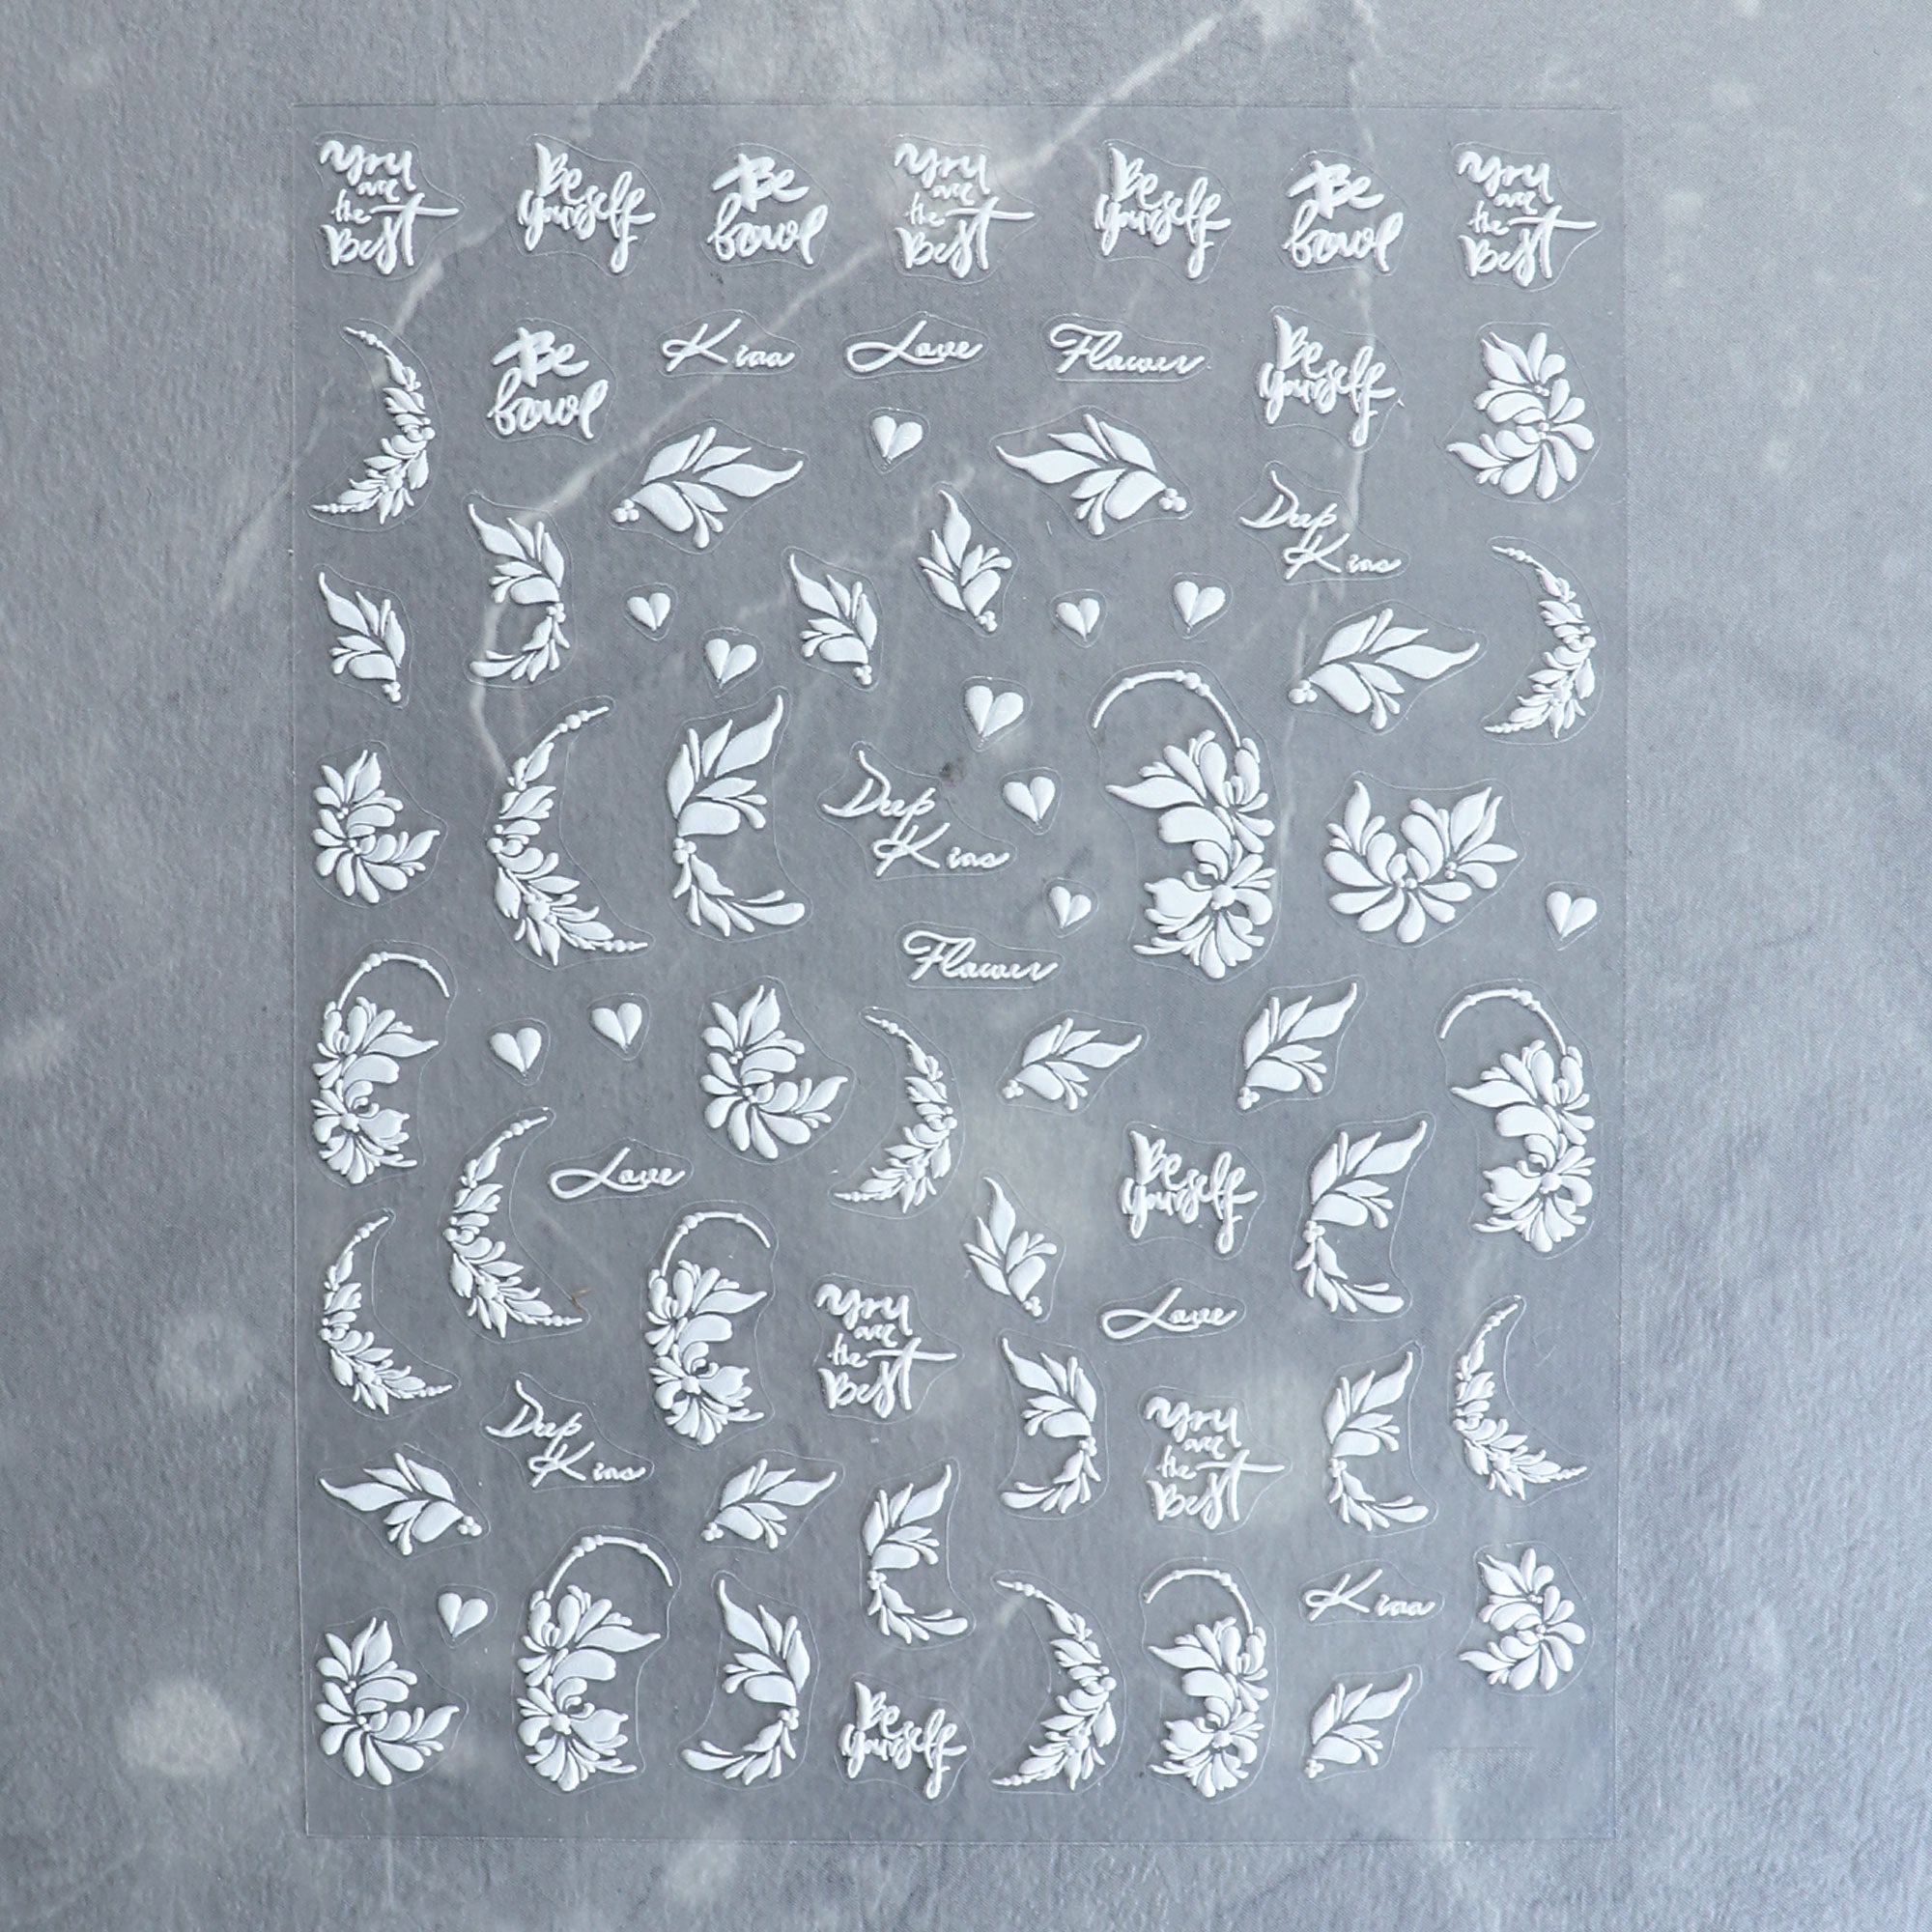 You
are
the
Best
Be
yourself
Be
bowl
You
are
the
Best
Be
yourself
Be
bowl
You
are
the
Best
Be
bowl
Kiss
Love
Flower
Be
yourself
Deep
Kiss
Deep
Kiss
Flower
Be
yourself
Love
You
are
the
Best
Love
Deep
Kiss
You
are
the
Best
Kiss
Be
yourself